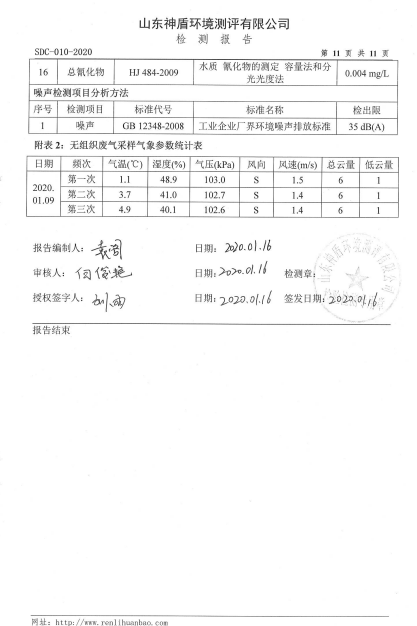 山东神盾环境测评有限公司
检 测 报 告
SDC-010-2020 第 11 页 共 11 页
16 总氰化物 HJ 484-2009 水质 氰化物的测定 容量法和分光光度法 0.004 mg/L
噪声检测项目分析方法
序号 检测项目 标准代号 标准名称 检出限
1 噪声 GB 12348-2008 工业企业厂界环境噪声排放标准 35 dB(A)
附表 2：无组织废气采样气象参数统计表
日期 频次 气温(℃) 湿度(%) 气压(kPa) 风向 风速(m/s) 总云量 低云量
2020.01.09 第一次 1.1 48.9 103.0 S 1.5 6 1
第二次 3.7 41.0 102.7 S 1.4 6 1
第三次 4.9 40.1 102.6 S 1.4 6 1
报告编制人： 日期：2020.01.16
审核人： 日期：2020.01.16 检测章：
授权签字人： 日期：2020.01.16 签发日期：2020.01.16
报告结束
网址：http://www.renlihuanbao.com